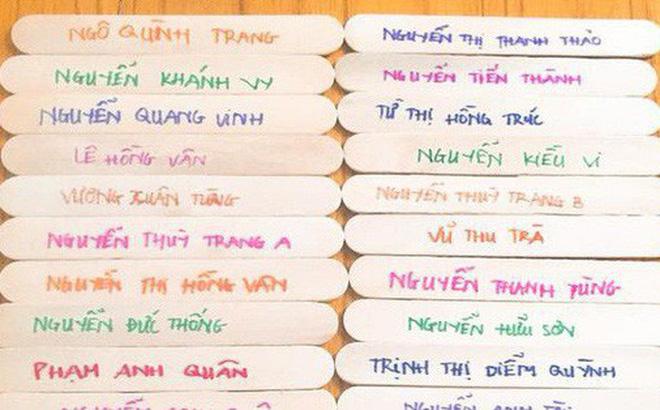 NGÔ QUỲNH TRANG
NGUYỄN KHÁNH VY
NGUYỄN QUANG VINH
LÊ HỒNG VÂN
VƯƠNG XUÂN TÙNG
NGUYỄN THUỲ TRANG A
NGUYỄN THỊ HỒNG VÂN
NGUYỄN ĐỨC THỐNG
PHẠM ANH QUÂN
NGUYỄN
NGUYỄN THỊ THANH THẢO
NGUYỄN TIẾN THÀNH
TỪ THỊ HỒNG TRÚC
NGUYỄN KIỀU VI
NGUYỄN THUỲ TRANG B
VŨ THU TRÀ
NGUYỄN THANH TÙNG
NGUYỄN HỮU SƠN
TRỊNH THỊ DIỄM QUỲNH
NGUYỄN ANH TÀI